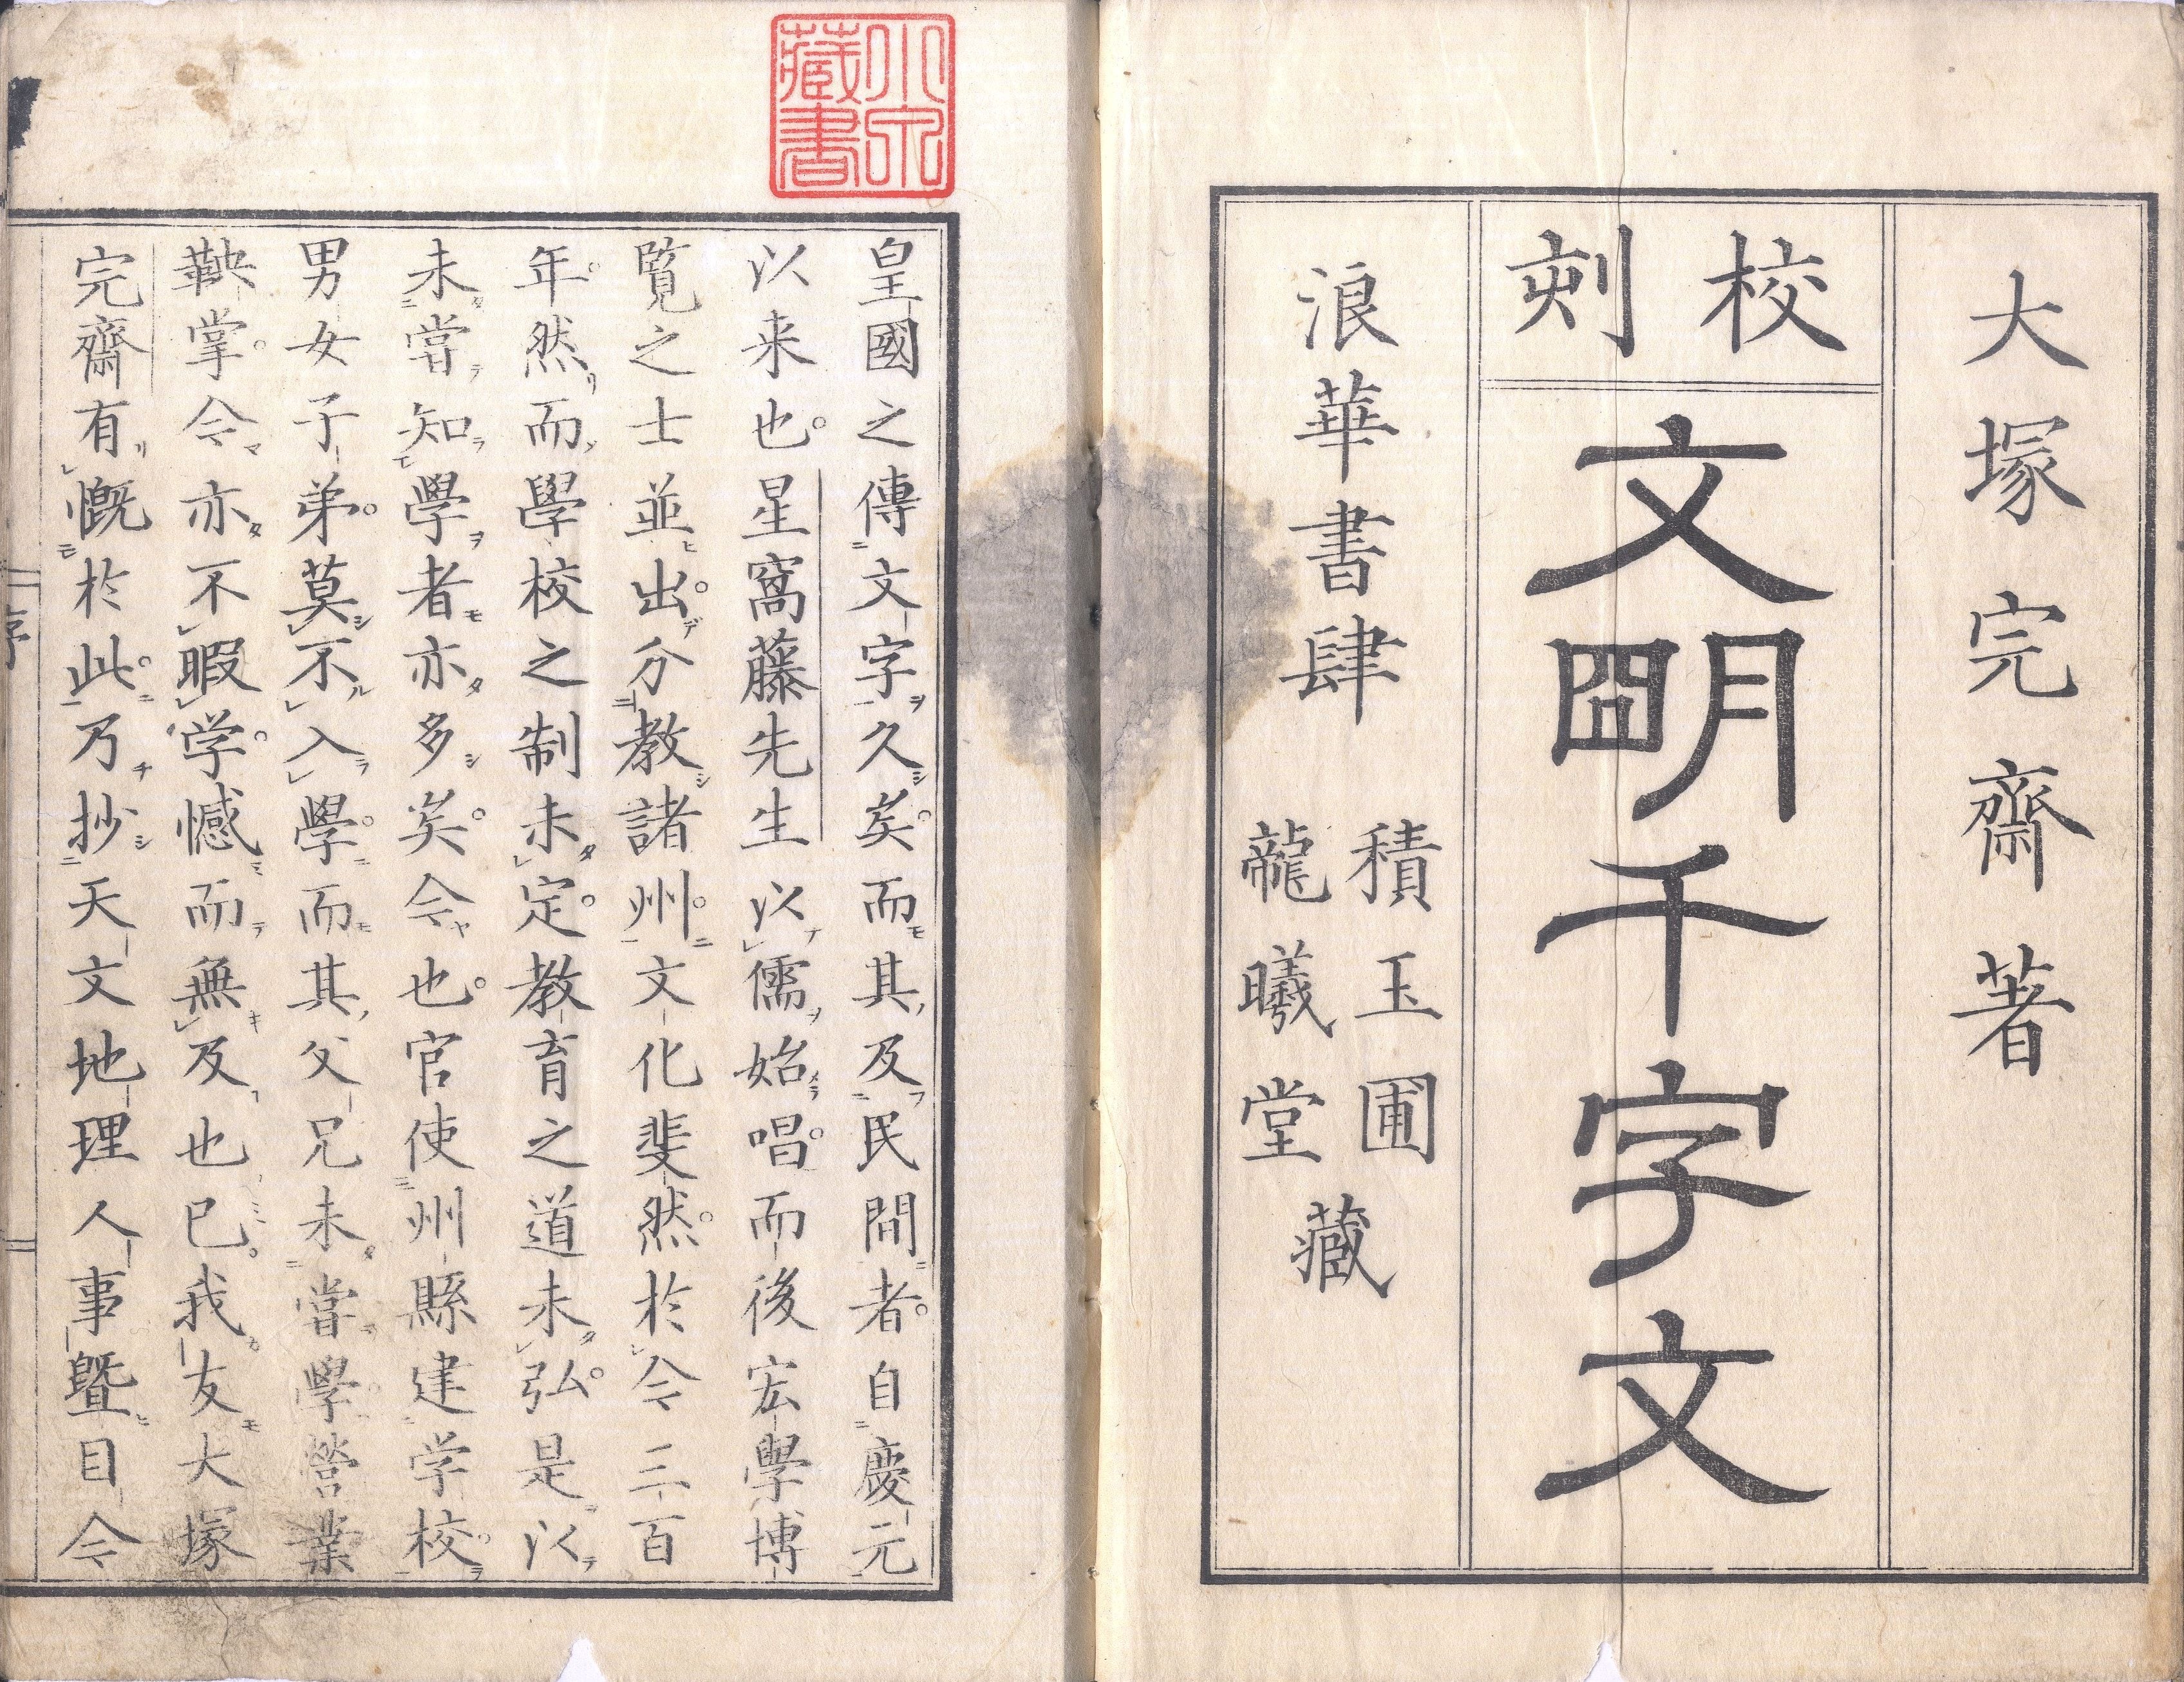 大塚完齋著
校刻
文明千字文
浪華書肆
積玉圃
龍曦堂
藏
皇國之傳文字久矣而其及民間者自慶元
以来也星窩藤先生以儒始唱而後宏學博
覧之士並出分教諸州文化斐然於今三百
年然而學校之制未定教育之道未弘是以
未嘗知學者亦多矣今也官使州縣建学校
男女子弟莫不入學而其父兄未嘗學営業
鞅掌今亦不暇学憾而無及也已我友大塚
完齋有慨於此乃抄天文地理人事曁目今
序
小泉藏書